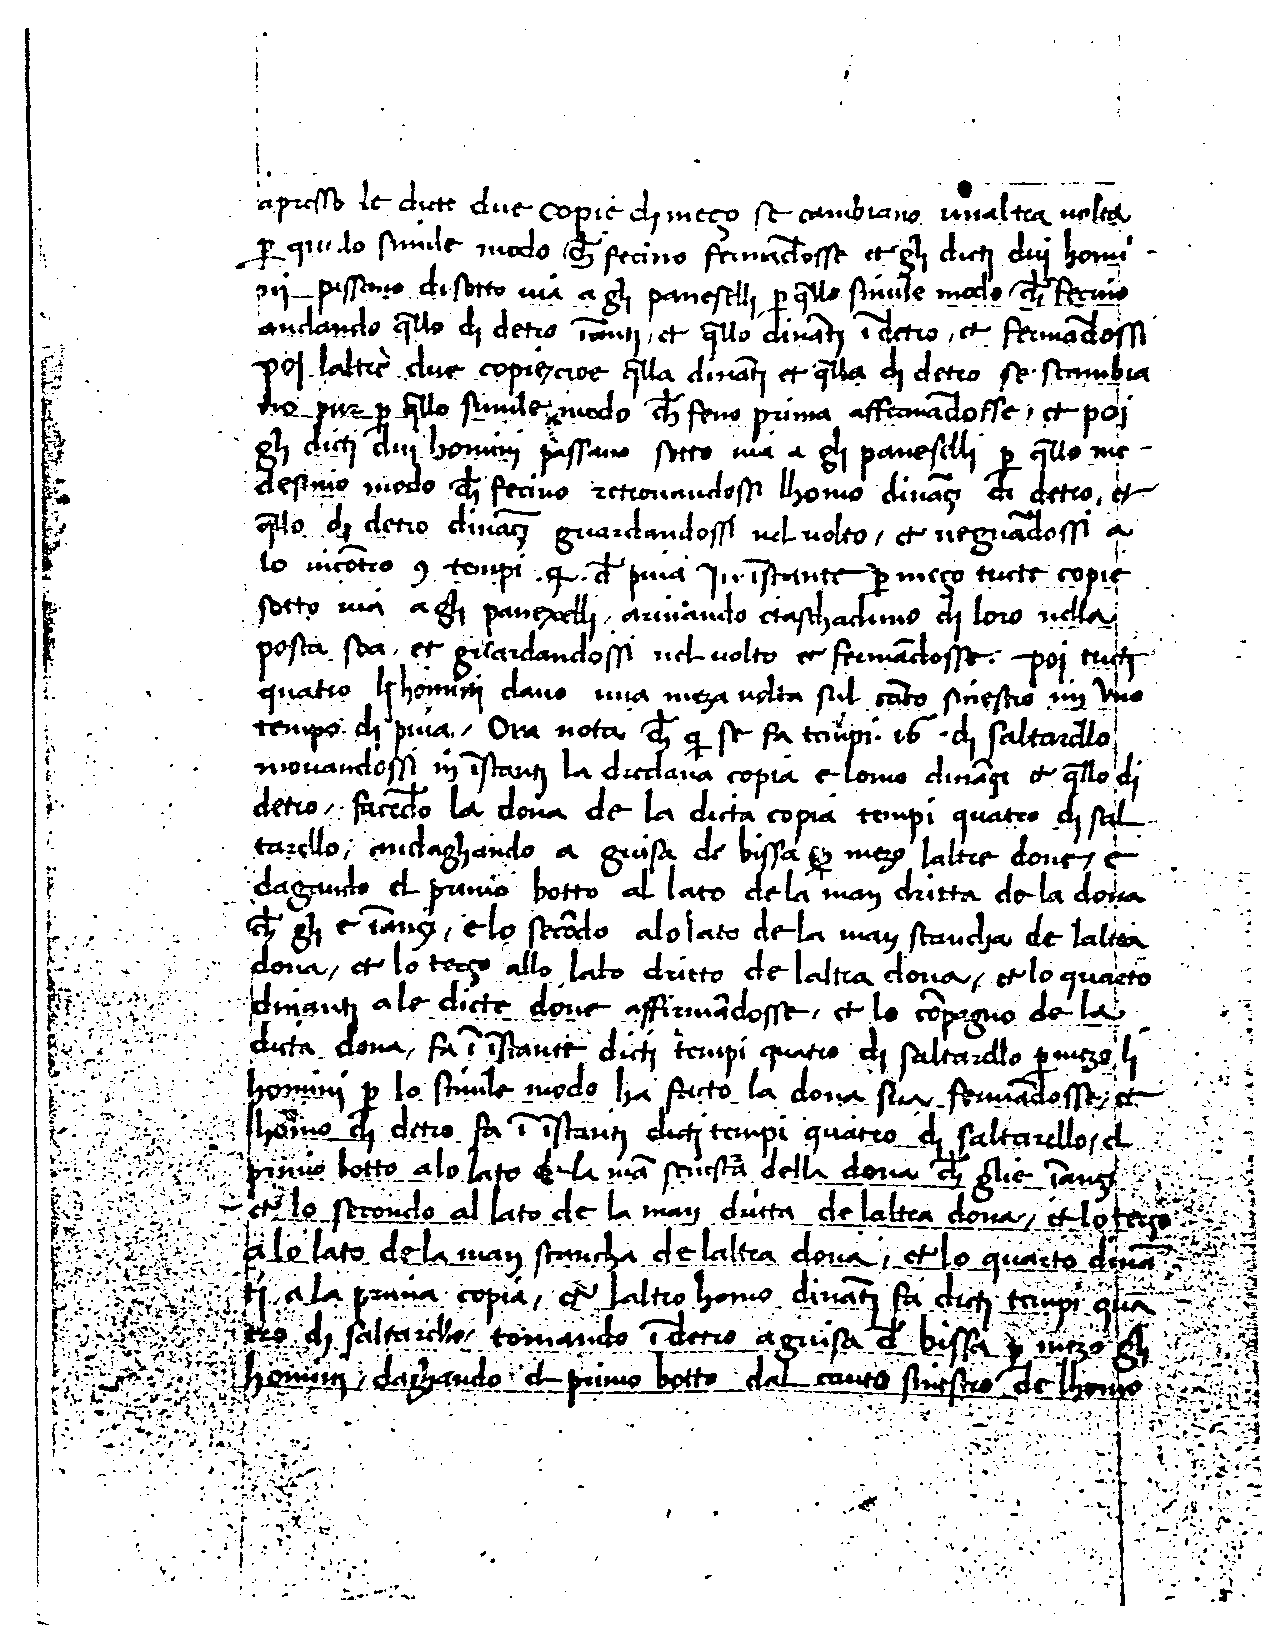 apresso le dicte due copie dj meço se cambiano unaltra uolta
p̱ quello simile modo ch̄ fecino fermādosse et glj dictj duj homi-
nj passeno disotto uia a glj paneselli p̱ q̄llo simile modo ch̄ fecino
andando q̄llo dj detro īantj, et q̄llo dināti īdetro, et fermādossi
poj laltre due copie, cioe q̄lla dinātj et q̄lla dj detro se scambia
no pur p̱ q̄llo simile modo ch̄ feno prima affermādosse, et poj
glj dictj duj hominj passano sotto uia a glj paneselli p̱ q̄llo me-
desimo modo ch̄ fecino retrouandossi lhomo dināçj dj detro, et
q̄llo dj detro dināçj guardandossi nel uolto, et uegnādossi a
lo incōtro 9 tempi .4. d̄ piua in īstante p̱ meço tucte copie
sotto uia a glj panexelli, ariuando ciaschaduno dj loro nella
posta soa, et guardandossi nel uolto et fermādosse. poj tuctj
quatro lj hominj dano una meza uolta sul cāto sinestro in uno
tempo dj piua, Ora nota ch̄ q̄ se fa tempi .16. dj saltarello
mouandossi in īstantj la dredana copia e lomo dināçi et q̄llo dj
detro, facēdo la dona de la dicta copia tempi quatro dj sal
tarello, andaghando a guisa de bissa p̱ mezo laltre done, e
dagando el primo botto al lato de la man dritta de la dona
ch̄ glj e īançj, e lo secōdo alo lato de la man stancha de laltra
dona, et lo terço allo lato dritto de laltra dona, et lo quarto
dinantj a le dicte done affirmādosse, et lo cōpagno de la
dicta dona, fa ī īstante dictj tempi quatro dj saltarello p̱ mezo li
hominj p̱ lo simile modo ha facto la dona sua fermādosse, et
lhomo dj detro fa ī īstantj dictj tempi quatro dj saltarello, el
primo botto alo lato de la mā senestra della dona ch̄ glie īançj
et lo secondo al lato de la man dritta de laltra dona, et lo terço
alo lato de la man stancha de laltra dona, et lo quarto dinā
tj a la prima copia, et laltro homo dinātj fa dictj tempi qua
tro dj saltarello, tornando īdetro a guisa d̄ bissa p̱ mezo glj
hominj, daghando el primo botto dal canto sinestro de lhomo